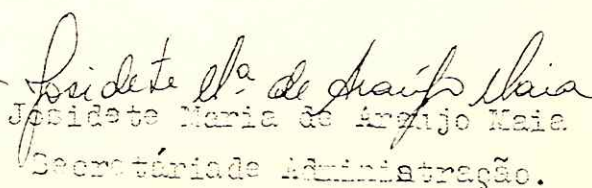 Josidete Mª de Araújo Maia
Josidete Maria de Araujo Maia
Secretáriade Administração.